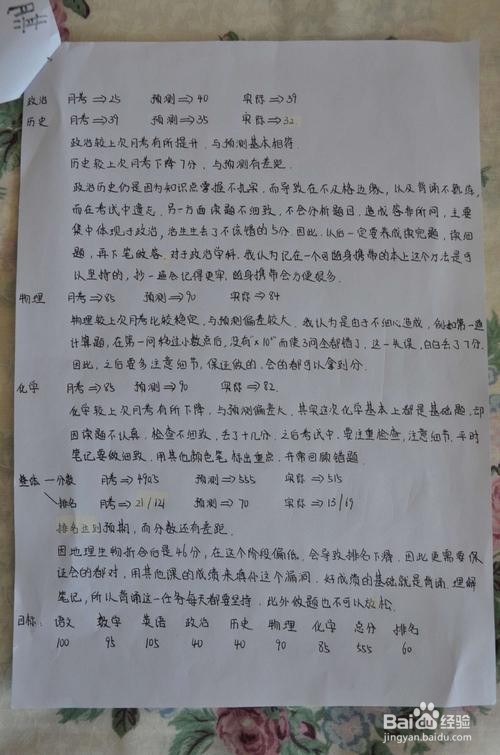 政治 月考⇒25 预测⇒40 实际⇒39
历史 月考⇒39 预测⇒35 实际⇒32
政治较上次月考有所提升、与预测基本相符.
历史较上次月考下降7分、与预测有差距.
政治历史仍是因为知识点掌握不扎实.而导致在不及格边缘,以及背诵不熟练,
而在考试中遗忘.另一方面读题不细致,不会分析题目.造成答非所问,主要
集中体现于政治,活生生丢了不该错的5分.因此,以后一定要养成读完题,读细
题,再下笔做答.对于政治学科.我认为记在一个可随身携带的本上这个方法是可
以坚持的,抄一遍会记得更牢,随身携带会方便很多.
物理 月考⇒85 预测⇒90 实际⇒84
物理较上次月考比较稳定、与预测偏差较大.我认为是由于不细心造成,例如第一道
计算题,在第一问移过小数点后,没有"×10"而使3问全都错了.这一失误,白白丢了7分.
因此,之后要多注意细节,保证做的、会的都可以拿到分.
化学 月考⇒85 预测⇒90 实际⇒82.
化学较上次月考有所下降,与预测偏差大、其实这次化学基本上都是基础题,却
因读题不认真、检查不细致、丢了十几分.之后考试中,要注重检查,注意细节.平时
笔记要做细致、用其他颜色笔标出重点、并常回顾错题.
整体 一分数 月考⇒490.5 预测⇒555 实际⇒515
排名 月考⇒21/121 预测⇒70 实际⇒13/69
排名达到预期,而分数还有差距.
因地理生物折合后是46分,在这个阶段偏低.会导致排名下降.因此更需要保
证会的都对,用其他课的成绩来填补这个漏洞.好成绩的基础就是背诵.理解
笔记,所以背诵这一任务每天都要坚持.此外做题也不可以放松.
目标: 语文 数学 英语 政治 历史 物理 化学 总分 排名
100 95 105 40 40 90 85 555 60
Baidu经验
jingyan.baidu.com